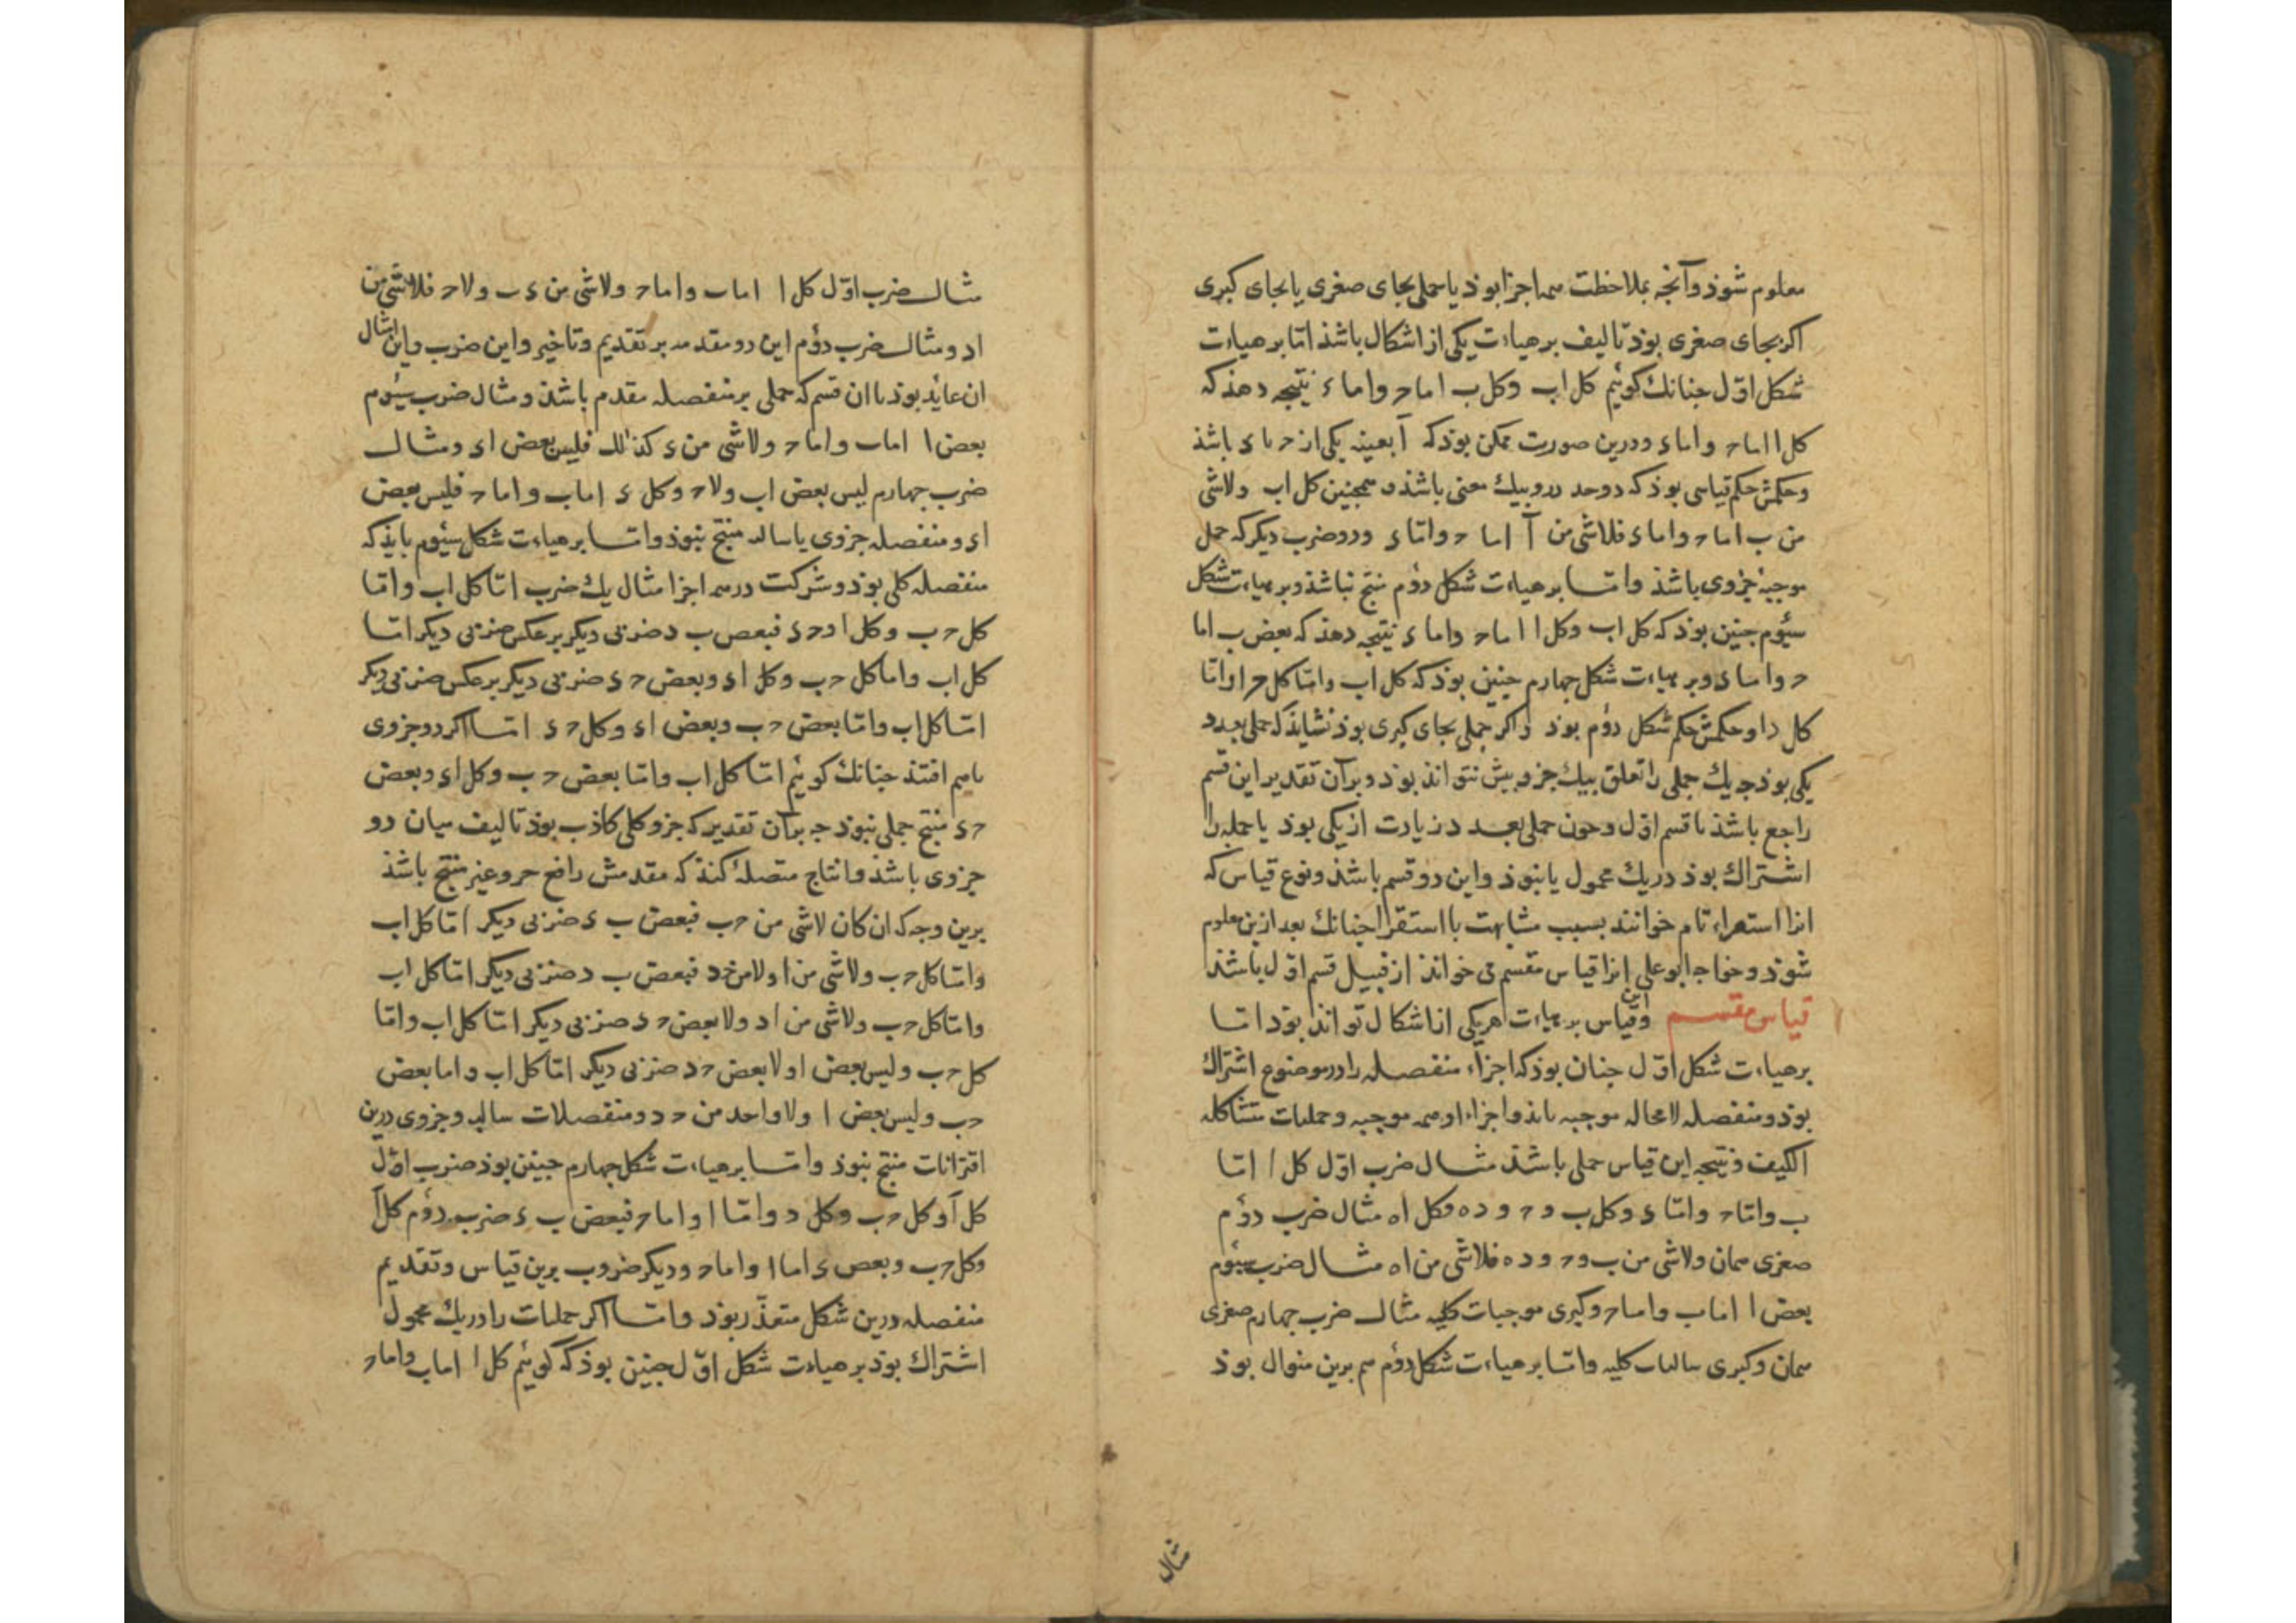 معلوم شوذ وآنچه بملاحظت همه اجزا بوذ یا حملی بجای صغری یا بجای کبری
اکر بجای صغری بوذ تالیف بر هیاءت یکی از اشکال باشذ اما بر هیاءت
شکل اول جنانك کوئیم کل اب وکل ب اما ح واما ء نتیجه دهذ که
کل ا اما ح واما ء ودرین صورت ممکن بوذ که آ بعینه یکی از ح یا ء باشذ
وحکمش حکم قیاسی بوذ که دو حد درو بیك معنی باشذ و همجنین کل اب ولاشی
من ب اما ح واما ء فلاشی من آ اما ح واما ء ودو ضرب دیکر که حمل
موجبهٔ جزوی باشذ واما بر هیاءت شکل دؤم منتج نباشذ وبر هیاءت شکل
سیؤم جنین بوذ که کل اب وکل ا اما ح واما ء نتیجه دهذ که بعض ب اما
ح واما ء وبر هیاءت شکل جهارم جنین بوذ که کل اب واما کل ح ا واما
کل د ا وحکمش حکم شکل دؤم بوذ واکر حملی بجای کبری بوذ نشایذ که حملی بعدد
یکی بوذ جه یك حملی را تعلق بیك جزو بیش نتوانذ بوذ وبر آن تقدیر این قسم
راجع باشذ با قسم اول وجون حملی بعدد زیادت از یکی بوذ یا جمله را
اشتراك بوذ در یك محمول یا نبوذ واین دو قسم باشذ ونوع قیاس که
انرا استقراء تام خوانند بسبب مشابهت با استقرا جنانك بعد ازین معلوم
شوذ وخواجه ابو علی انرا قیاس مقسم می خوانذ از قبیل قسم اول باشذ
قیاس مقسم واین قیاس بر هیاءت هریکی از اشکال توانذ بوذ اما
بر هیاءت شکل اول جنان بوذ که اجزاء منفصله را در موضوع اشتراك
بوذ ومنفصله لامحاله موجبه بایذ واجزاء او همه موجبه وحملیات متشاکله
الکیف ونتیجه این قیاس حملی باشذ مثال ضرب اول کل ا اما
ب واما ح واما ء وکل ب و ح و د ه فکل ا ه مثال ضرب دؤم
صغری همان ولاشی من ب و ح و د ه فلاشی من ا ه مثال ضرب سیؤم
بعض ا اما ب واما ح وکبری موجبات کلیه مثال ضرب جهارم صغری
همان وکبری سالبات کلیه واما بر هیاءت شکل دؤم هم برین منوال بوذ
مثال
مثال ضرب اول کل ا اما ب واما ح ولاشی من ء ب ولا ح فلاشی من
ا د ومثال ضرب دؤم این دو مقدمه بر تقدیم وتاخیر واین ضرب واین امثال
ان عاید بوذ با ان قسم که حملی بر منفصله مقدم باشذ ومثال ضرب سیؤم
بعض ا اما ب واما ح ولاشی من ء کذلك فلیس بعض ا ء ومثال
ضرب جهارم لیس بعض اب ولا ح وکل ء اما ب واما ح فلیس بعض
ا ء ومنفصله جزوی یا سالبه منتج نبوذ واما بر هیاءت شکل سیؤم بایذ که
منفصله کلی بوذ وشرکت در همه اجزا مثال یك ضرب اما کل اب واما
کل ح ب وکل ا د ح ء فبعض ب د ضربی دیکر بر عکس ضربی دیکر اما
کل اب واما کل ح ب وکل ا ء وبعض ح ء ضربی دیکر بر عکس ضربی دیکر
اما کل اب واما بعض ح ب وبعض ا ء وکل ح ء اما اکر دو جزوی
باهم افتذ جنانك کوئیم اما کل اب واما بعض ح ب وکل ا ء وبعض
ح ء منتج حملی نبوذ جه بر آن تقدیر که جزو کلی کاذب بوذ تالیف میان دو
جزوی باشذ وانتاج متصلهٔ کنذ که مقدمش رافع جزو غیر منتج باشذ
برین وجه که ان کان لاشی من ح ب فبعض ب ء ضربی دیکر اما کل اب
واما کل ح ب ولاشی من ا ولا من ح د فبعض ب د ضربی دیکر اما کل اب
واما کل ح ب ولاشی من ا د ولا بعض ح د ضربی دیکر اما کل اب واما
کل ح ب ولیس بعض ا ولا بعض ح د ضربی دیکر اما کل اب واما بعض
ح ب ولیس بعض ا ولا واحد من ح د ومنفصلات سالبه وجزوی درین
اقترانات منتج نبوذ واما بر هیاءت شکل جهارم جنین بوذ ضرب اول
کل آ وکل ح ب وکل د واما ا واما ح فبعض ب ء ضرب دؤم کل آ
وکل ح ب وبعض ء اما ا واما ح ودیکر ضروب برین قیاس وتقدیم
منفصله درین شکل متعذر بوذ واما اکر حملیات را در یك محمول
اشتراك بوذ بر هیاءت شکل اول جنین بوذ که کوئیم کل ا اما ب واما ح